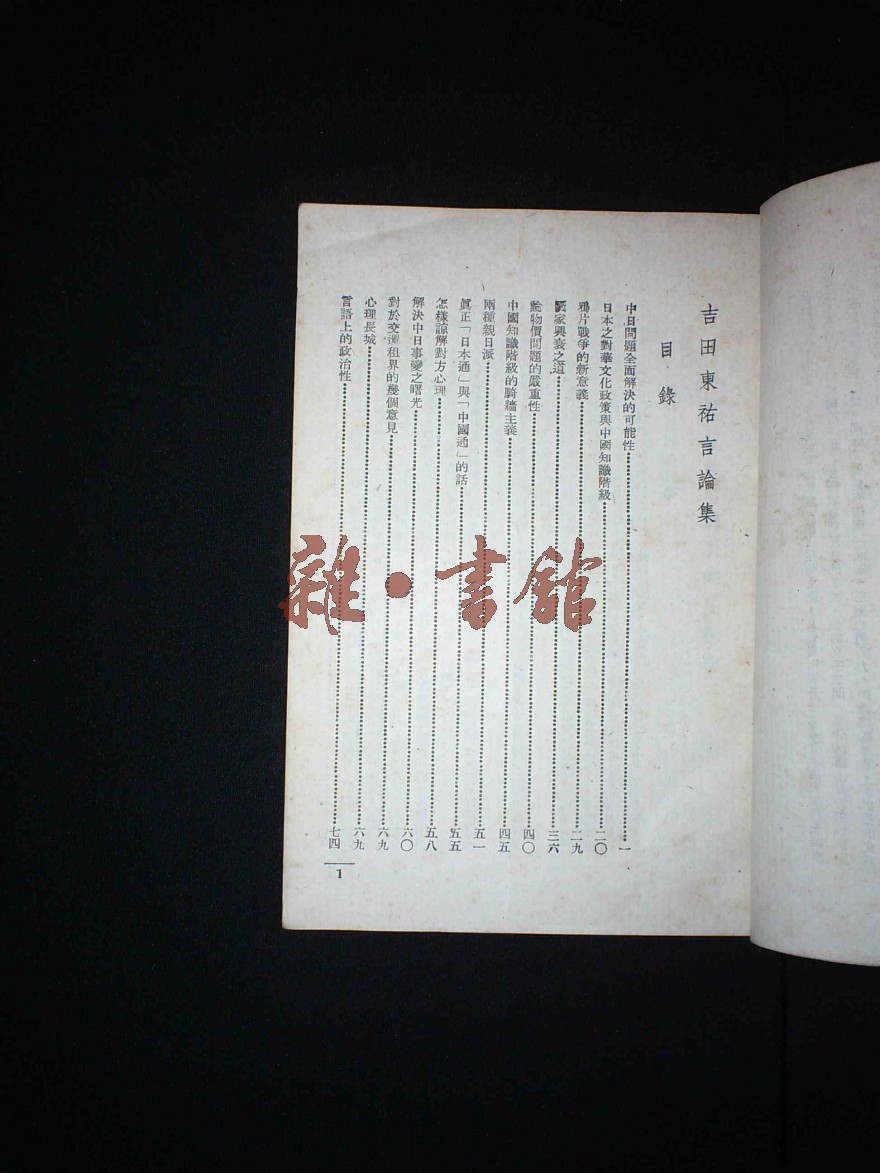 吉田東祐言論集
目錄
中日問題全面解決的可能性 一
日本之對華文化政策與中國知識階級 二〇
鴉片戰爭的新意義 二九
國家興衰之道 三六
論物價問題的嚴重性 四〇
中國知識階級的騎牆主義 四五
兩種親日派 五一
眞正「日本通」與「中國通」的話 五五
怎樣諒解對方心理 五八
解決中日事變之曙光 六〇
對於交還租界的幾個意見 六九
心理長城 六九
言語上的政治性 七四
1
雜·書館